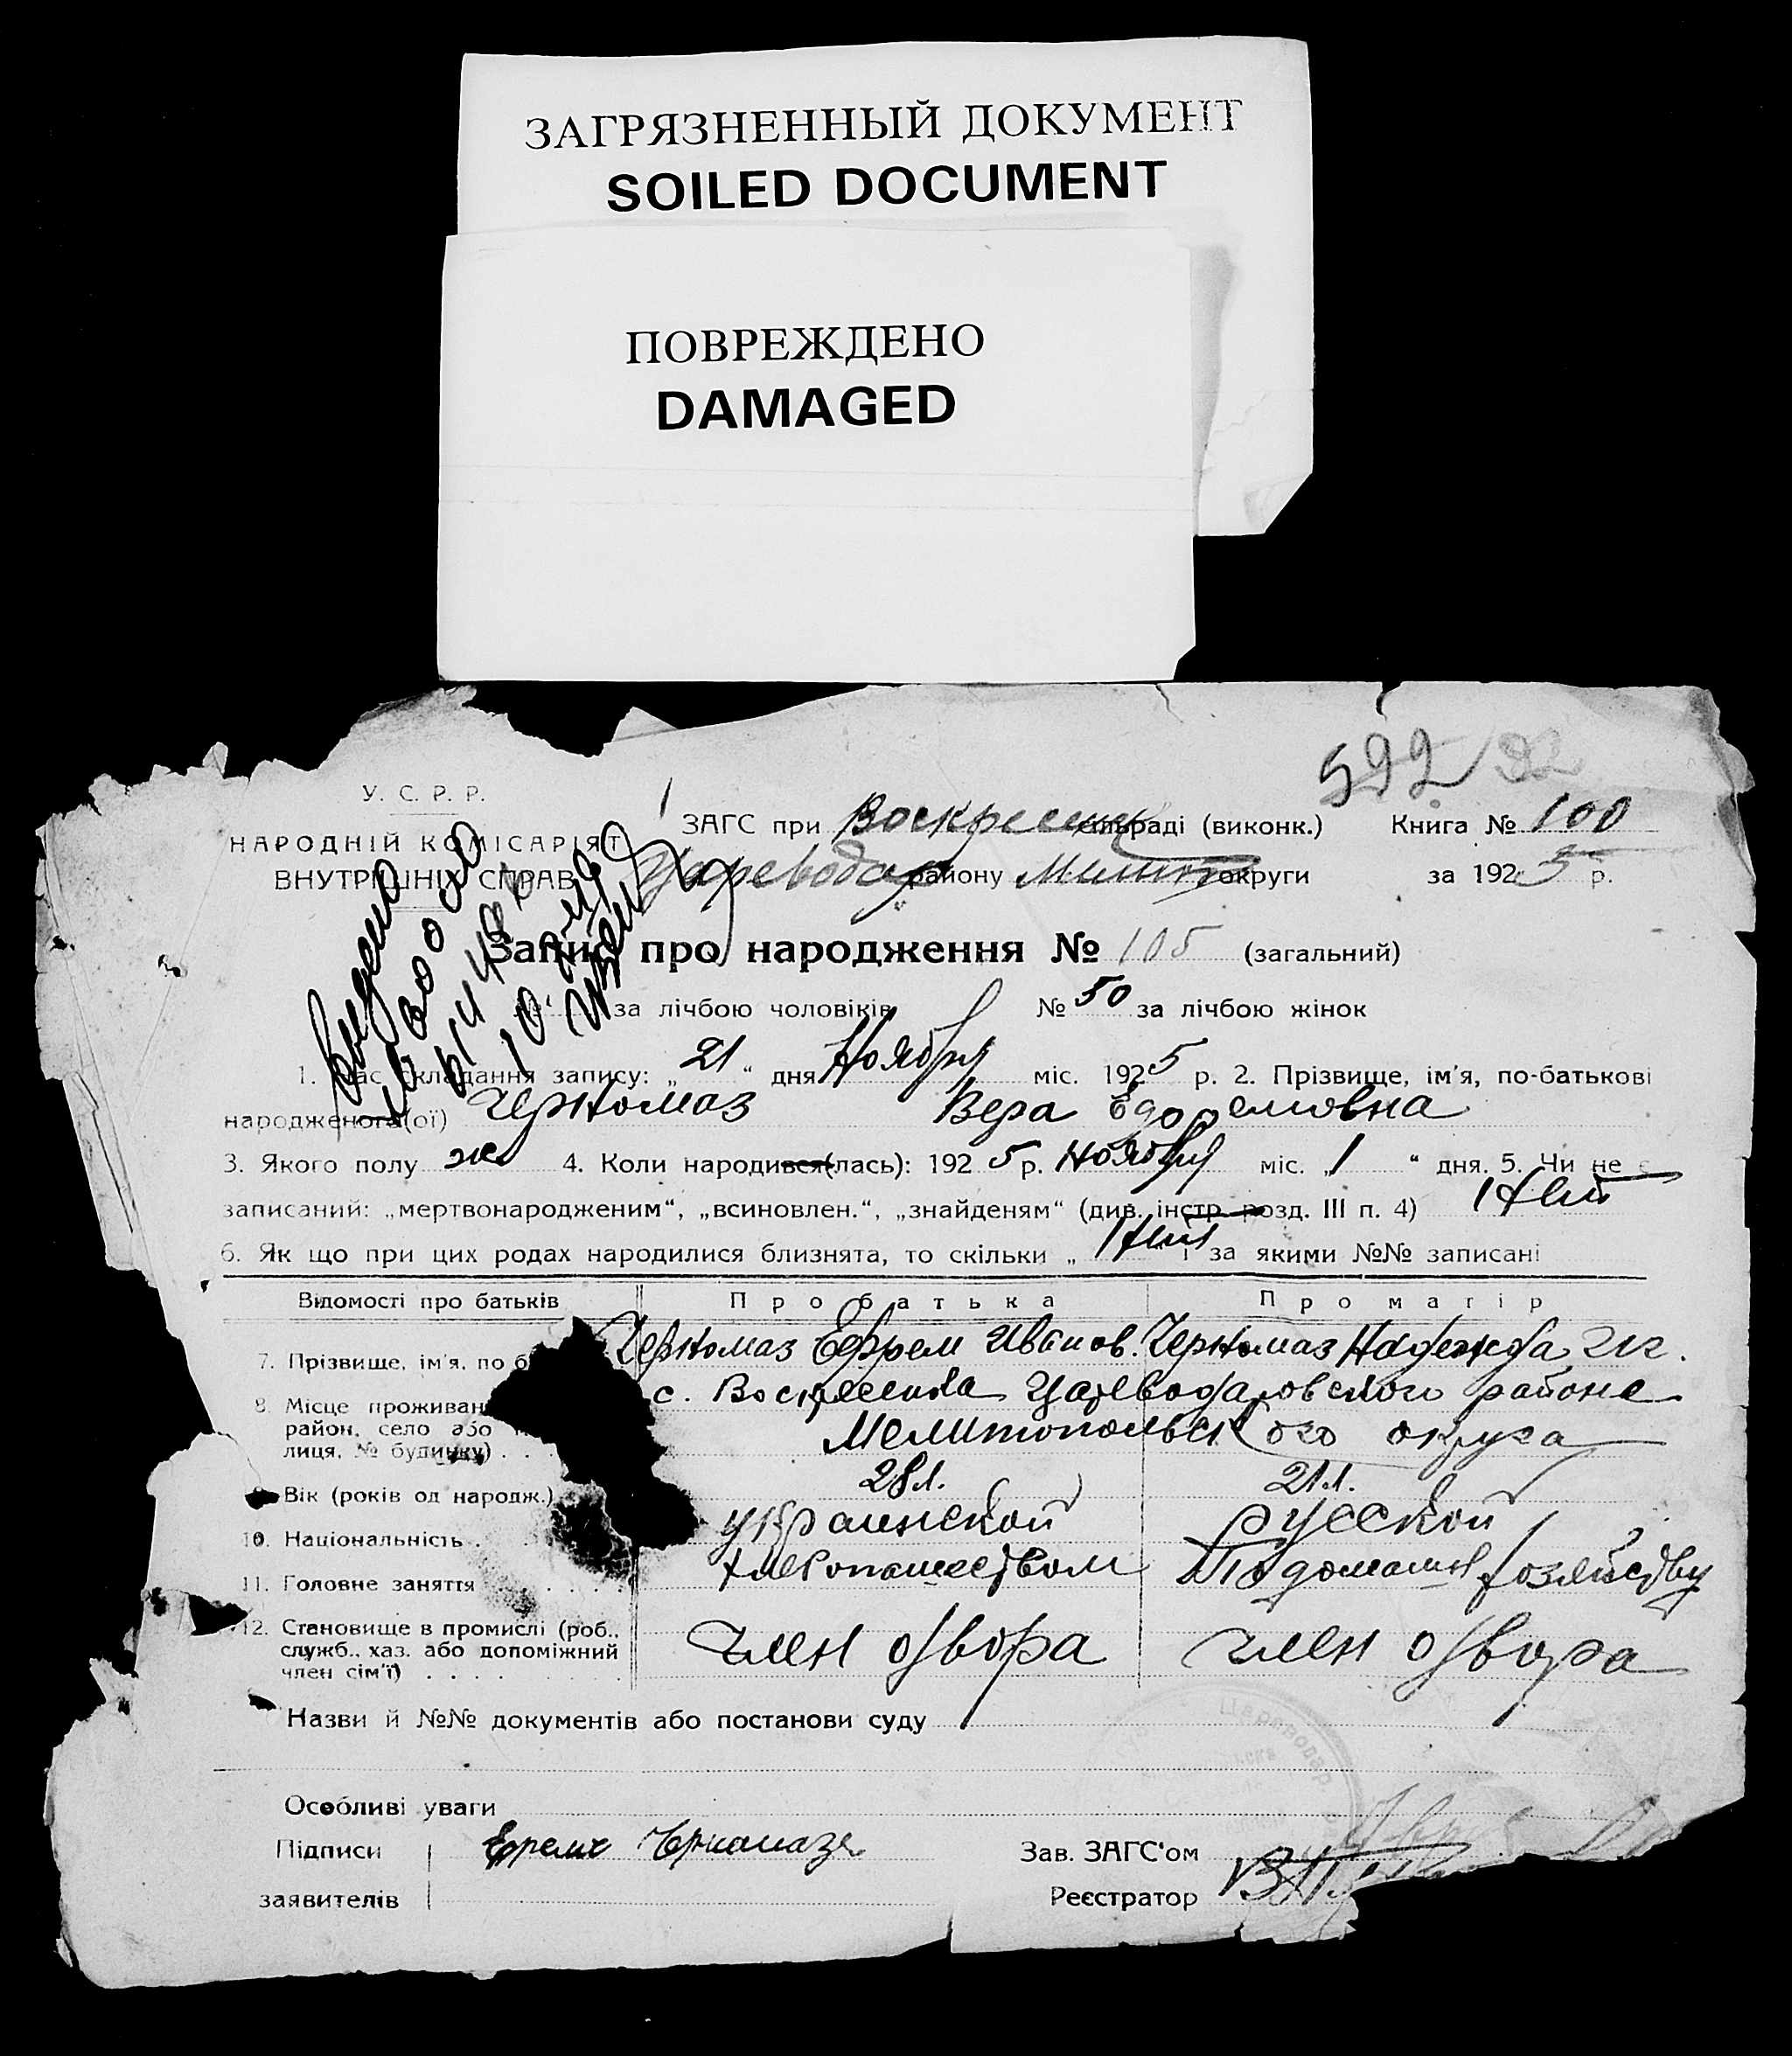 ЗАГРЯЗНЕННЫЙ ДОКУМЕНТ
SOILED DOCUMENT
ПОВРЕЖДЕНО
DAMAGED
592
У. С. Р. Р.
НАРОДНІЙ КОМІСАРІЯТ
ВНУТРІШНІХ СПРАВ
ЗАГС при Воскресенк сільраді (виконк.) Книга № 100
Цареводар району Мелит округи за 1925 р.
Запис про народження № 105 (загальний)
за лічбою чоловіків № 50 за лічбою жінок
1. Час складання запису: „21“ дня Ноября міс. 1925 р. 2. Прізвище, ім'я, по-батькові
народженого(ої) Черномаз Вера Ефремовна
3. Якого полу ж 4. Коли народився(лась): 1925 р. Ноября міс. „1“ дня. 5. Чи не є
записаний: „мертвонародженим“, „всиновлен.“, „знайденям“ (див. інстр. розд. III п. 4) Нет
6. Як що при цих родах народилися близнята, то скільки „Нет“ і за якими №№ записані
Відомості про батьків Про батька Про матір
7. Прізвище, ім'я, по б Черномаз Ефрем Иванов. Черномаз Надежда
8. Місце проживан с. Воскресенка Цареводаровского района
район, село або Мелитопольского округа
лиця, № будинку)
9. Вік (років од народж.) 28 л. 21 л.
10. Національність украинской русской
11. Головне заняття хлебопашеством По домашн хозяйству
12. Становище в промислі (роб.,
служб., хаз. або допоміжний член двора член двора
член сім'ї)
Назви й №№ документів або постанови суду
Особливі уваги
Підписи Ефремъ Черномазъ Зав. ЗАГС'ом
заявителів Реєстратор